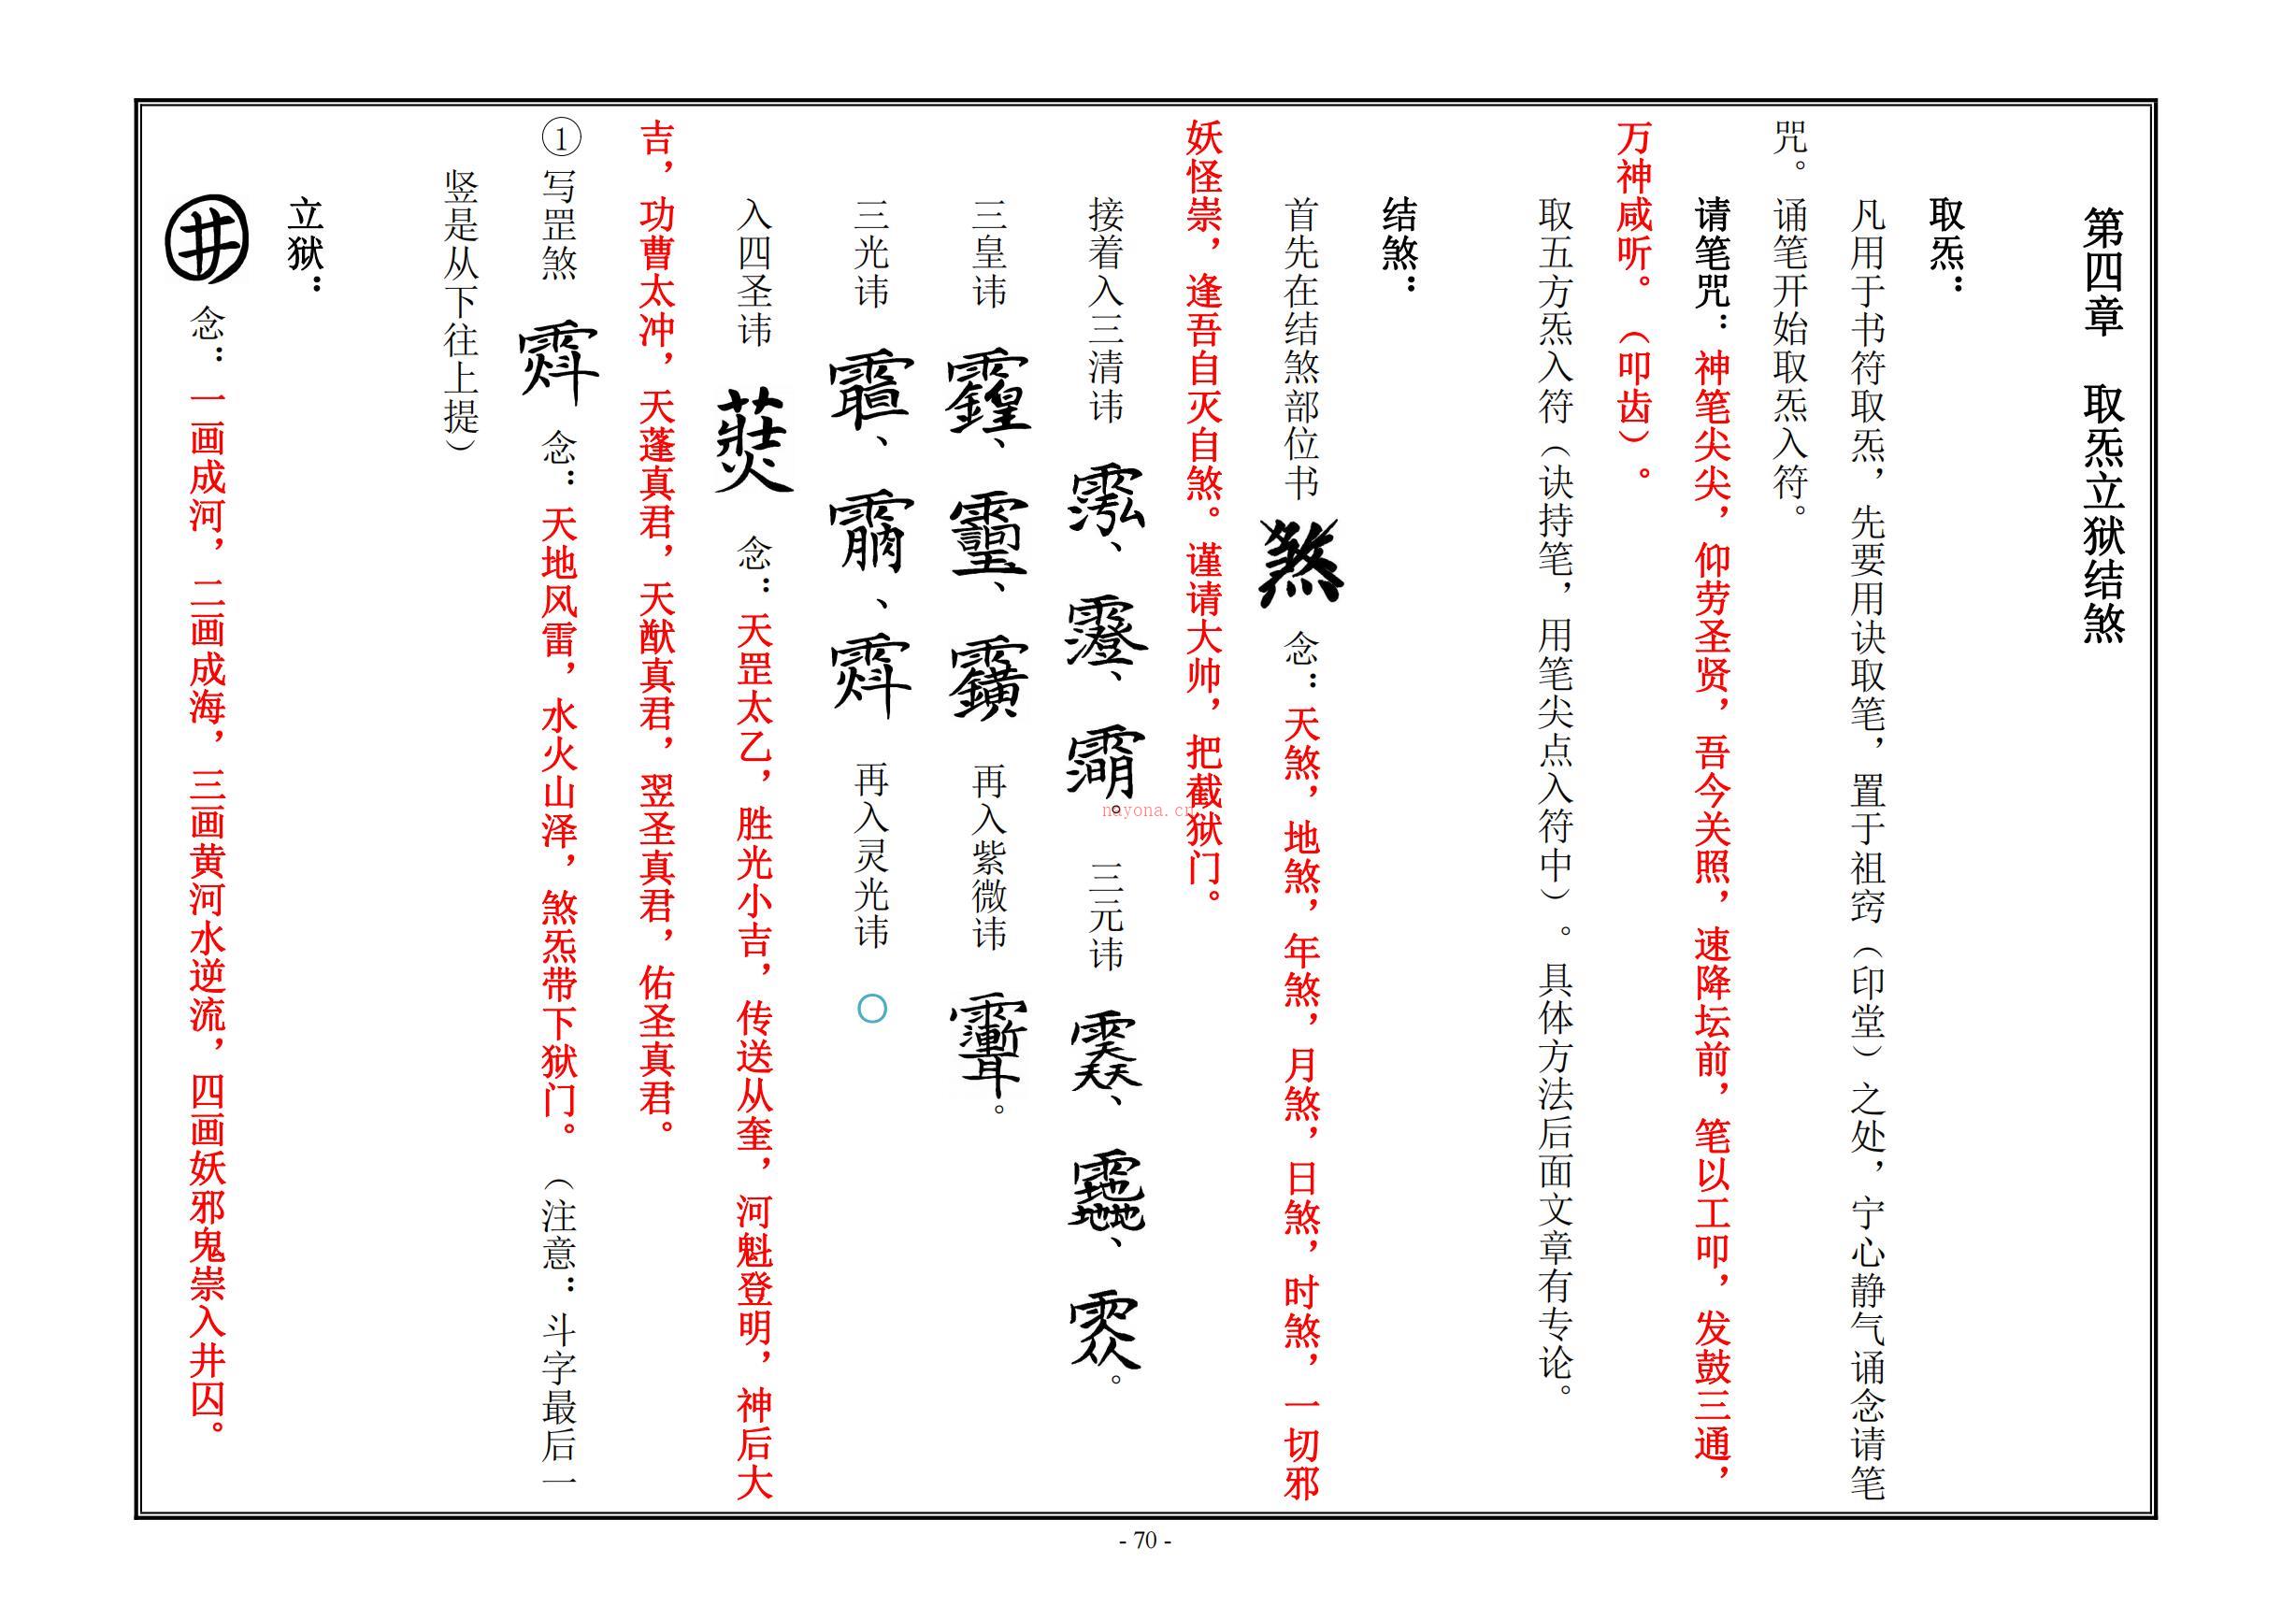 第四章 取炁立狱结煞
取炁：
凡用于书符取炁，先要用诀取笔，置于祖窍（印堂）之处，宁心静气诵念请笔
咒。诵笔开始取炁入符。
请笔咒：神笔尖尖，仰劳圣贤，吾今关照，速降坛前，笔以工叩，发鼓三通，
万神咸听。（叩齿）。
取五方炁入符（诀持笔，用笔尖点入符中）。具体方法后面文章有专论。
结煞：
首先在结煞部位书 煞 念：天煞，地煞，年煞，月煞，日煞，时煞，一切邪
妖怪祟，逢吾自灭自煞。谨请大帅，把截狱门。
接着入三清讳 、 、 。 三元讳 、 、 。
三皇讳 、 、 再入紫微讳 。
三光讳 、 、 再入灵光讳 〇
入四圣讳 念：天罡太乙，胜光小吉，传送从奎，河魁登明，神后大
吉，功曹太冲，天蓬真君，天猷真君，翌圣真君，佑圣真君。
①写罡煞 念：天地风雷，水火山泽，煞炁带下狱门。（注意：斗字最后一
竖是从下往上提）
立狱：
井 念：一画成河，二画成海，三画黄河水逆流，四画妖邪鬼祟入井囚。
nayona.cn
- 70 -